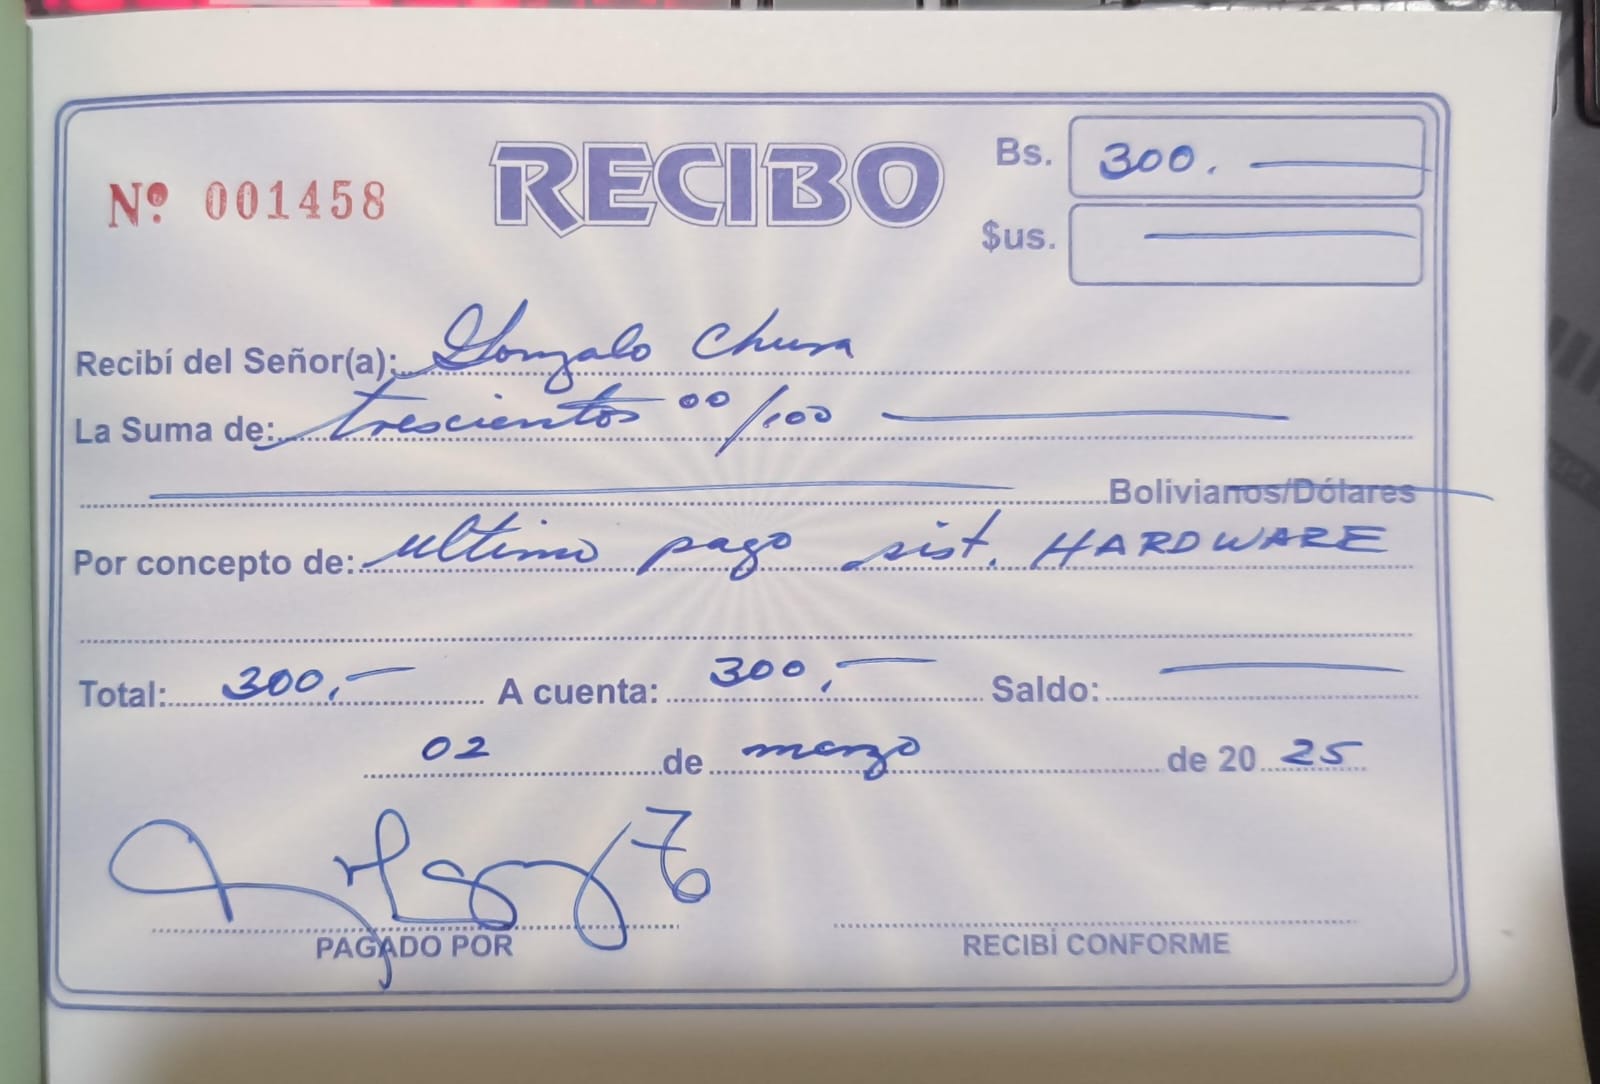 Nº 001458
RECIBO
Bs. 300.
$us.
Recibí del Señor(a): Gonzalo Chura
La Suma de: trescientos 00/100
Bolivianos/Dólares
Por concepto de: ultimo pago sist. HARDWARE
Total: 300,- A cuenta: 300,- Saldo:
02 de marzo de 2025
PAGADO POR RECIBÍ CONFORME